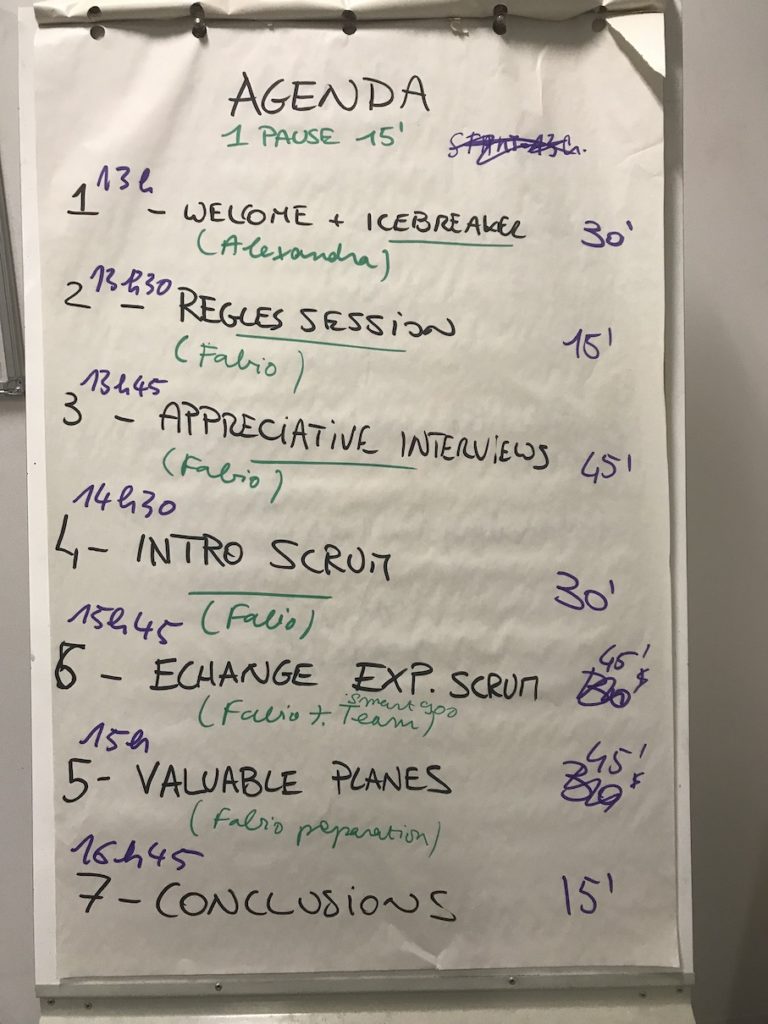 AGENDA
1 PAUSE 15'
START 13h.
13h
1 - WELCOME + ICEBREAKER 30'
(Alexandra)
13h30
2 - REGLES SESSION 15'
(Fabio)
13h45
3 - APPRECIATIVE INTERVIEWS 45'
(Fabio)
14h30
4 - INTRO SCRUM 30'
(Fabio)
15h45
6 - ECHANGE EXP. SCRUM 45'
(Fabio + Team)
15h
5 - VALUABLE PLANES 45'
(Fabio preparation)
16h45
7 - CONCLUSIONS 15'